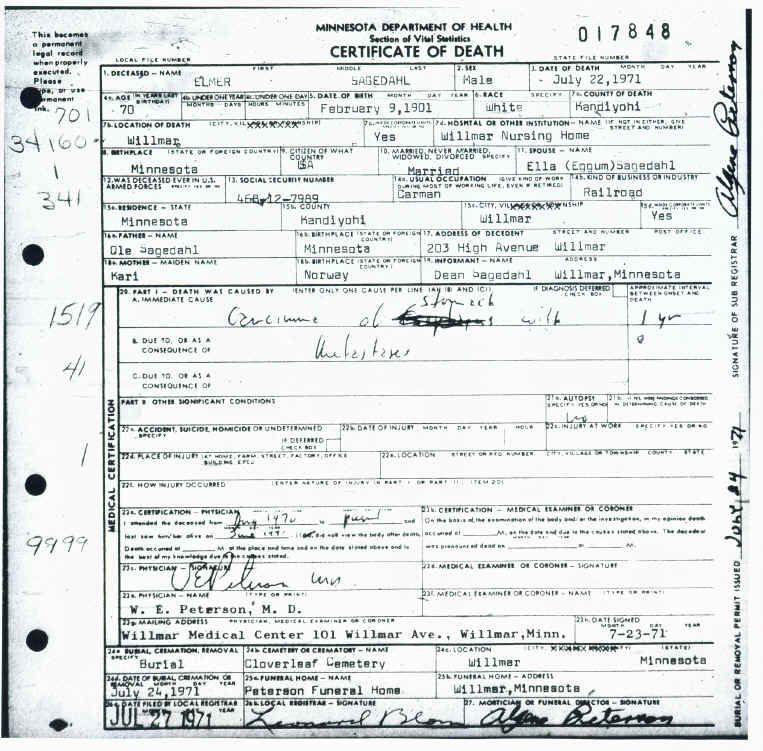 This becomes
a permanent
legal record
when properly
executed.
Please
type, or use
permanent
ink.
MINNESOTA DEPARTMENT OF HEALTH
Section of Vital Statistics
CERTIFICATE OF DEATH
017848
LOCAL FILE NUMBER
STATE FILE NUMBER
1. DECEASED — NAME FIRST MIDDLE LAST 2. SEX 3. DATE OF DEATH MONTH DAY YEAR
ELMER SAGEDAHL Male July 22, 1971
4A. AGE (IN YEARS LAST BIRTHDAY) 4B. UNDER ONE YEAR 4C. UNDER ONE DAY 5. DATE OF BIRTH MONTH DAY YEAR 6. RACE SPECIFY 7A. COUNTY OF DEATH
MONTHS DAYS HOURS MINUTES
70 February 9, 1901 White Kandiyohi
701
7B. LOCATION OF DEATH 7D. HOSPITAL OR OTHER INSTITUTION — NAME (IF NOT IN EITHER, GIVE STREET AND NUMBER)
Willmar Yes Willmar Nursing Home
34160
8. BIRTHPLACE (STATE OR FOREIGN COUNTRY) 9. CITIZEN OF WHAT COUNTRY 10. MARRIED, NEVER MARRIED, WIDOWED, DIVORCED SPECIFY 11. SPOUSE — NAME
Minnesota USA Married Ella (Eggum)Sagedahl
1
12. WAS DECEASED EVER IN U.S. ARMED FORCES 13. SOCIAL SECURITY NUMBER 14A. USUAL OCCUPATION (GIVE KIND OF WORK DURING MOST OF WORKING LIFE, EVEN IF RETIRED) 14B. KIND OF BUSINESS OR INDUSTRY
468-12-7989 Carman Railroad
341
15A. RESIDENCE — STATE 15B. COUNTY 15C. CITY,
Minnesota Kandiyohi Willmar Yes
16A. FATHER — NAME 16B. BIRTHPLACE (STATE OR FOREIGN COUNTRY) 17. ADDRESS OF DECEDENT STREET AND NUMBER POST OFFICE
Ole Sagedahl Minnesota 203 High Avenue Willmar
18A. MOTHER — MAIDEN NAME 18B. BIRTHPLACE (STATE OR FOREIGN COUNTRY) 19. INFORMANT — NAME ADDRESS
Kari Norway Dean Sagedahl Willmar,Minnesota
20. PART I — DEATH WAS CAUSED BY (ENTER ONLY ONE CAUSE PER LINE (A) (B) AND (C)) IF DIAGNOSIS DEFERRED CHECK BOX APPROXIMATE INTERVAL BETWEEN ONSET AND DEATH
A. IMMEDIATE CAUSE
Stomach
Carcinoma of with 1 yr
1519
B. DUE TO, OR AS A CONSEQUENCE OF
Metastases
41
C. DUE TO, OR AS A CONSEQUENCE OF
PART II OTHER SIGNIFICANT CONDITIONS 21A. AUTOPSY SPECIFY YES OR NO 21B. IF YES, WERE FINDINGS CONSIDERED IN DETERMINING CAUSE OF DEATH
No
MEDICAL CERTIFICATION
22A. ACCIDENT, SUICIDE, HOMICIDE OR UNDETERMINED SPECIFY IF DEFERRED CHECK BOX 22B. DATE OF INJURY MONTH DAY YEAR HOUR 22C. INJURY AT WORK SPECIFY YES OR NO
1
22D. PLACE OF INJURY (AT HOME, FARM, STREET, FACTORY, OFFICE BUILDING ETC.) 22E. LOCATION STREET OR RFD NUMBER CITY, VILLAGE OR TOWNSHIP COUNTY STATE
22F. HOW INJURY OCCURRED (ENTER NATURE OF INJURY IN PART I OR PART II, ITEM 20)
23A. CERTIFICATION — PHYSICIAN 23B. CERTIFICATION — MEDICAL EXAMINER OR CORONER
I attended the deceased from 1970 to and On the basis of the examination of the body and/or the investigation, in my opinion death
last saw him/her alive on June 1971 did not view the body after death. occurred at M, on the date and due to the causes stated. The decedent
9999
Death occurred at M at the place and time and on the date stated above and to the best of my knowledge due to the causes stated. was pronounced dead on at M.
23C. PHYSICIAN — SIGNATURE 23D. MEDICAL EXAMINER OR CORONER — SIGNATURE
WE Peterson MD
23E. PHYSICIAN — NAME (TYPE OR PRINT) 23F. MEDICAL EXAMINER OR CORONER — NAME (TYPE OR PRINT)
W. E. Peterson, M. D.
23G. MAILING ADDRESS PHYSICIAN, MEDICAL EXAMINER OR CORONER 23H. DATE SIGNED MONTH DAY YEAR
Willmar Medical Center 101 Willmar Ave., Willmar,Minn. 7-23-71
24A. BURIAL, CREMATION, REMOVAL SPECIFY 24B. CEMETERY OR CREMATORY — NAME 24C. LOCATION (STATE)
Burial Cloverleaf Cemetery Willmar Minnesota
24D. DATE OF BURIAL, CREMATION OR REMOVAL MONTH DAY YEAR 25A. FUNERAL HOME — NAME 25B. FUNERAL HOME — ADDRESS
July 24,1971 Peterson Funeral Home Willmar,Minnesota
26A. DATE FILED BY LOCAL REGISTRAR MONTH DAY YEAR 26B. LOCAL REGISTRAR — SIGNATURE 27. MORTICIAN OR FUNERAL DIRECTOR — SIGNATURE
JUL 27 1971 Leonard Blom Algene Peterson
BURIAL OR REMOVAL PERMIT ISSUED July 24 1971 SIGNATURE OF SUB REGISTRAR Algene Peterson